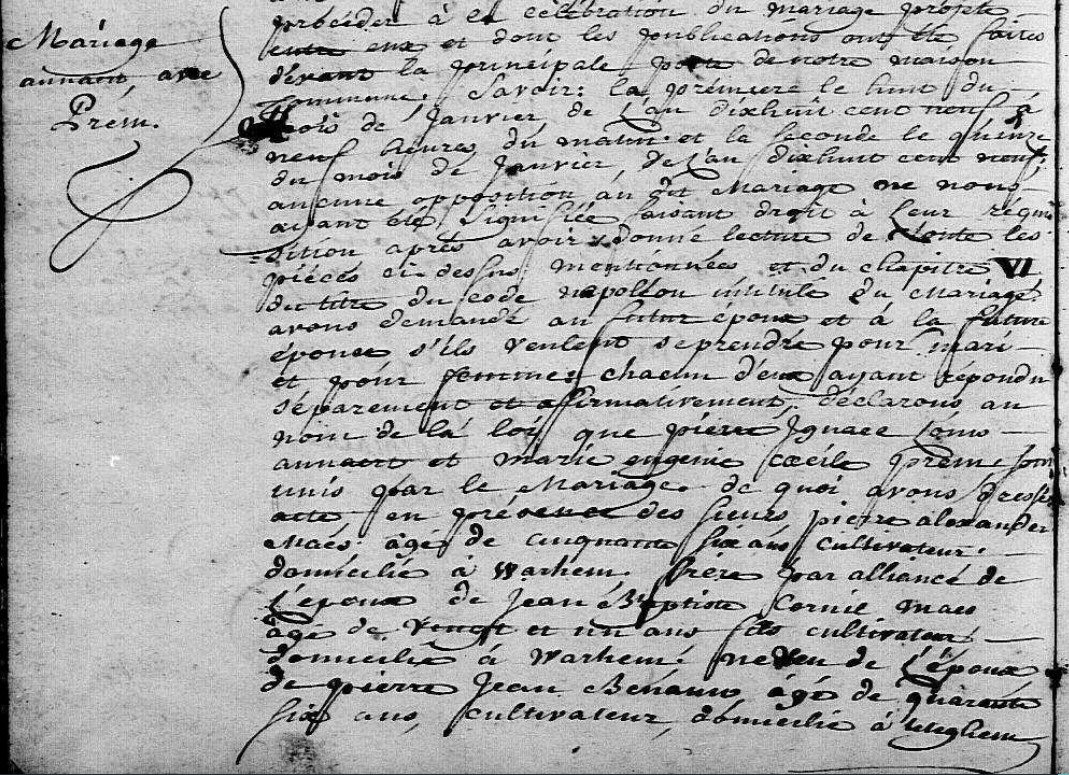 Mariage
annaert, avec
Prém.
procéder à la célébration du mariage projeté
entre eux et dont les publications ont été faites
devant la principale porte de notre maison
commune; Savoir: la première le huit du
mois de Janvier de L'an dixhuit cent neuf à
neuf heures du matin et le seconde le quinze
du mois de Janvier de L'an dixhuit cent neuf,
aucune opposition au dit Mariage ne nous
ayant été Signifiée faisant droit à Leur réqui
=sition après avoir donné lecture de toute les
piéces ci-dessus mentionnées et du chapitre VI
du titre du code napoléon intitulé du Mariage
avons demandé au futur epoux et à la future
épouse s'ils veulent se prendre pour mari
et pour femme; chacun d'eux ayant répondu
séparement et affirmativement, déclarons au
nom de la loi que piérre Ignace Louis
annaert et marie eugenie cœcile prém sont
unis par le Mariage. de quoi avons dressé
acte en présence des sieurs pierre alexander
Maes agé de cinquante six ans cultivateur
domicilié à Warhem frère par alliance de
L'epoux de Jean Baptiste Cornil maes
agé de vingt et un ans fils cultivateur
domicilié à Warhem neveu de L'époux
de pierre Jean agé de quarante
six ans, cultivateur, domicilié à